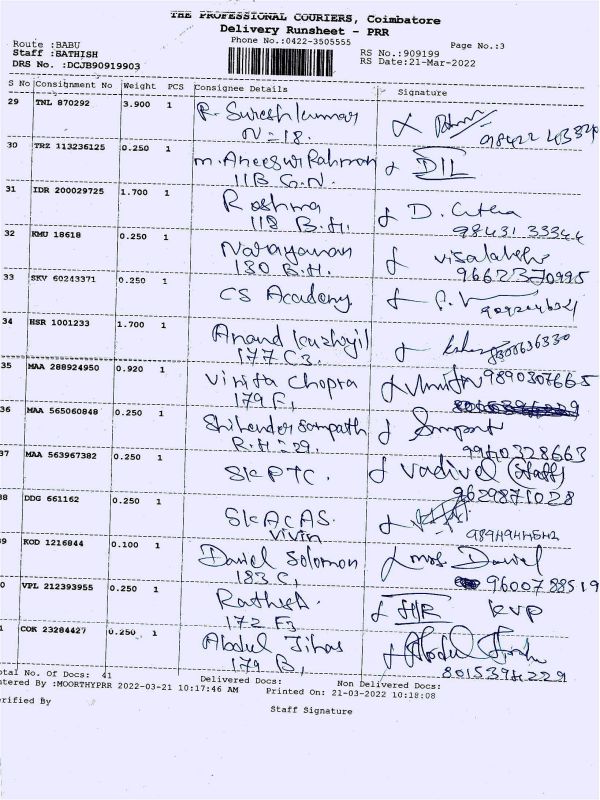 THE PROFESSIONAL COURIERS, Coimbatore
Delivery Runsheet - PRR
Phone No.:0422-3505555
Page No.:3
Route :BABU
Staff :SATHISH
DRS No. :DCJB90919903
RS No.:909199
RS Date:21-Mar-2022
S No Consignment No Weight PCS Consignee Details Signature
29 TNL 870292 3.900 1 R. Suresh kumar
N = 18.
30 TRZ 113236125 0.250 1 DIL
11B G.N.
31 IDR 200029725 1.700 1 Reshma D.
118 B.H. 98431 33344
32 KMU 18618 0.250 1 Narayanan
130 B.H. 9662370995
33 SKV 60243371 0.250 1 CS Academy
34 HSR 1001233 1.700 1 Anand
177 C3.
35 MAA 288924950 0.920 1 Vinita Chopra 9890307665
179 F,
36 MAA 565060848 0.250 1 Shitender Sampath
R.H = 29. 9940328663
37 MAA 563967382 0.250 1 SKPTC. Vadivel (Staff)
9629871028
38 DDG 661162 0.250 1 SKACAS.
Vivin
39 KOD 1216844 0.100 1 Daniel Solomon mrs. Daniel
183 C, 9600788519
0 VPL 212393955 0.250 1 KVP
172 F3
1 COK 23284427 0.250 1 Abdul Jihas Abdul
179 B,
otal No. Of Docs: 41 Delivered Docs: Non Delivered Docs:
ntered By :MOORTHYPRR 2022-03-21 10:17:46 AM Printed On: 21-03-2022 10:18:08
erified By
Staff Signature